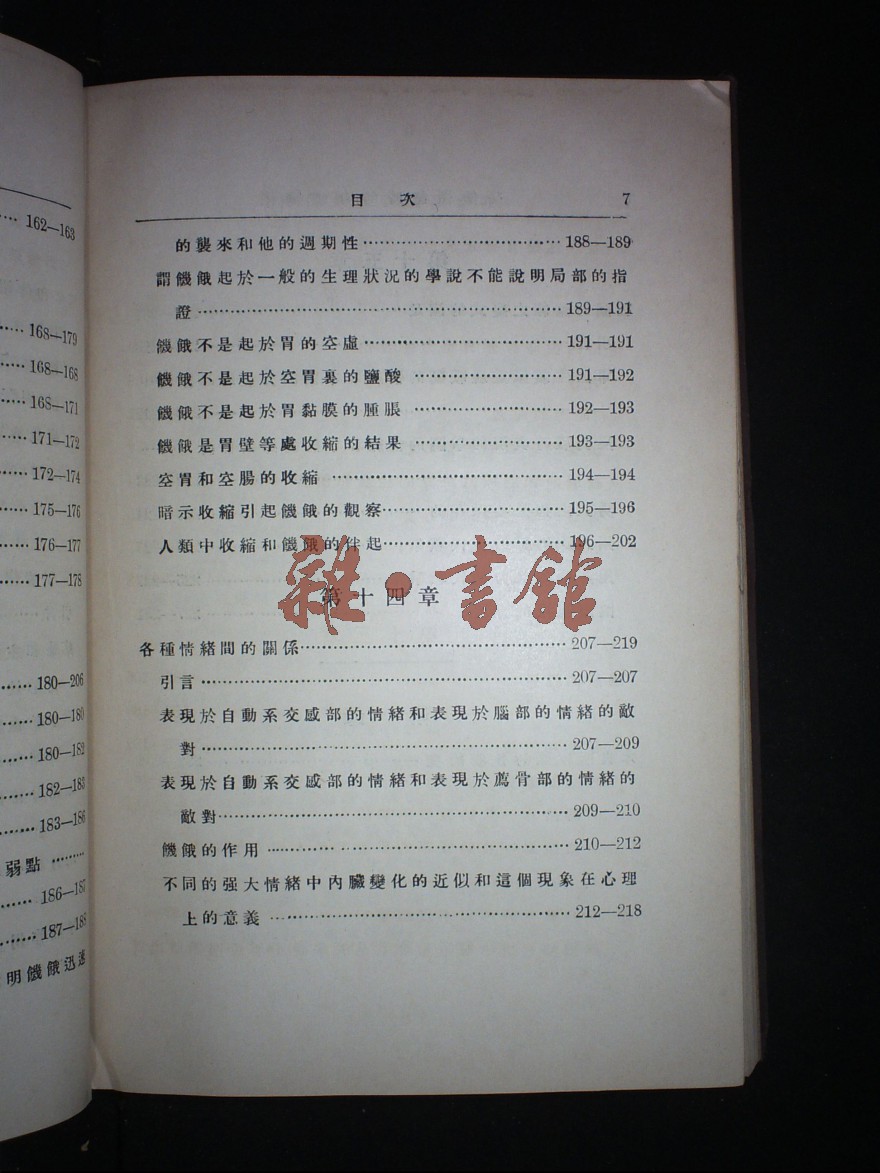 162—163
168—179
168—168
168—171
171—172
172—174
175—176
176—177
177—178
180—206
180—180
180—182
182—183
183—186
弱點
186—187
187—188
明饑餓迅速
目次 7
的襲來和他的週期性 188—189
謂饑餓起於一般的生理狀況的學說不能說明局部的指
證 189—191
饑餓不是起於胃的空虛 191—191
饑餓不是起於空胃裏的鹽酸 191—192
饑餓不是起於胃黏膜的腫脹 192—193
饑餓是胃壁等處收縮的結果 193—193
空胃和空腸的收縮 194—194
暗示收縮引起饑餓的觀察 195—196
人類中收縮和饑餓的伴起 196—202
第十四章
雜·書館
各種情緒間的關係 207—219
引言 207—207
表現於自動系交感部的情緒和表現於腦部的情緒的敵
對 207—209
表現於自動系交感部的情緒和表現於薦骨部的情緒的
敵對 209—210
饑餓的作用 210—212
不同的强大情緒中內臟變化的近似和這個現象在心理
上的意義 212—218